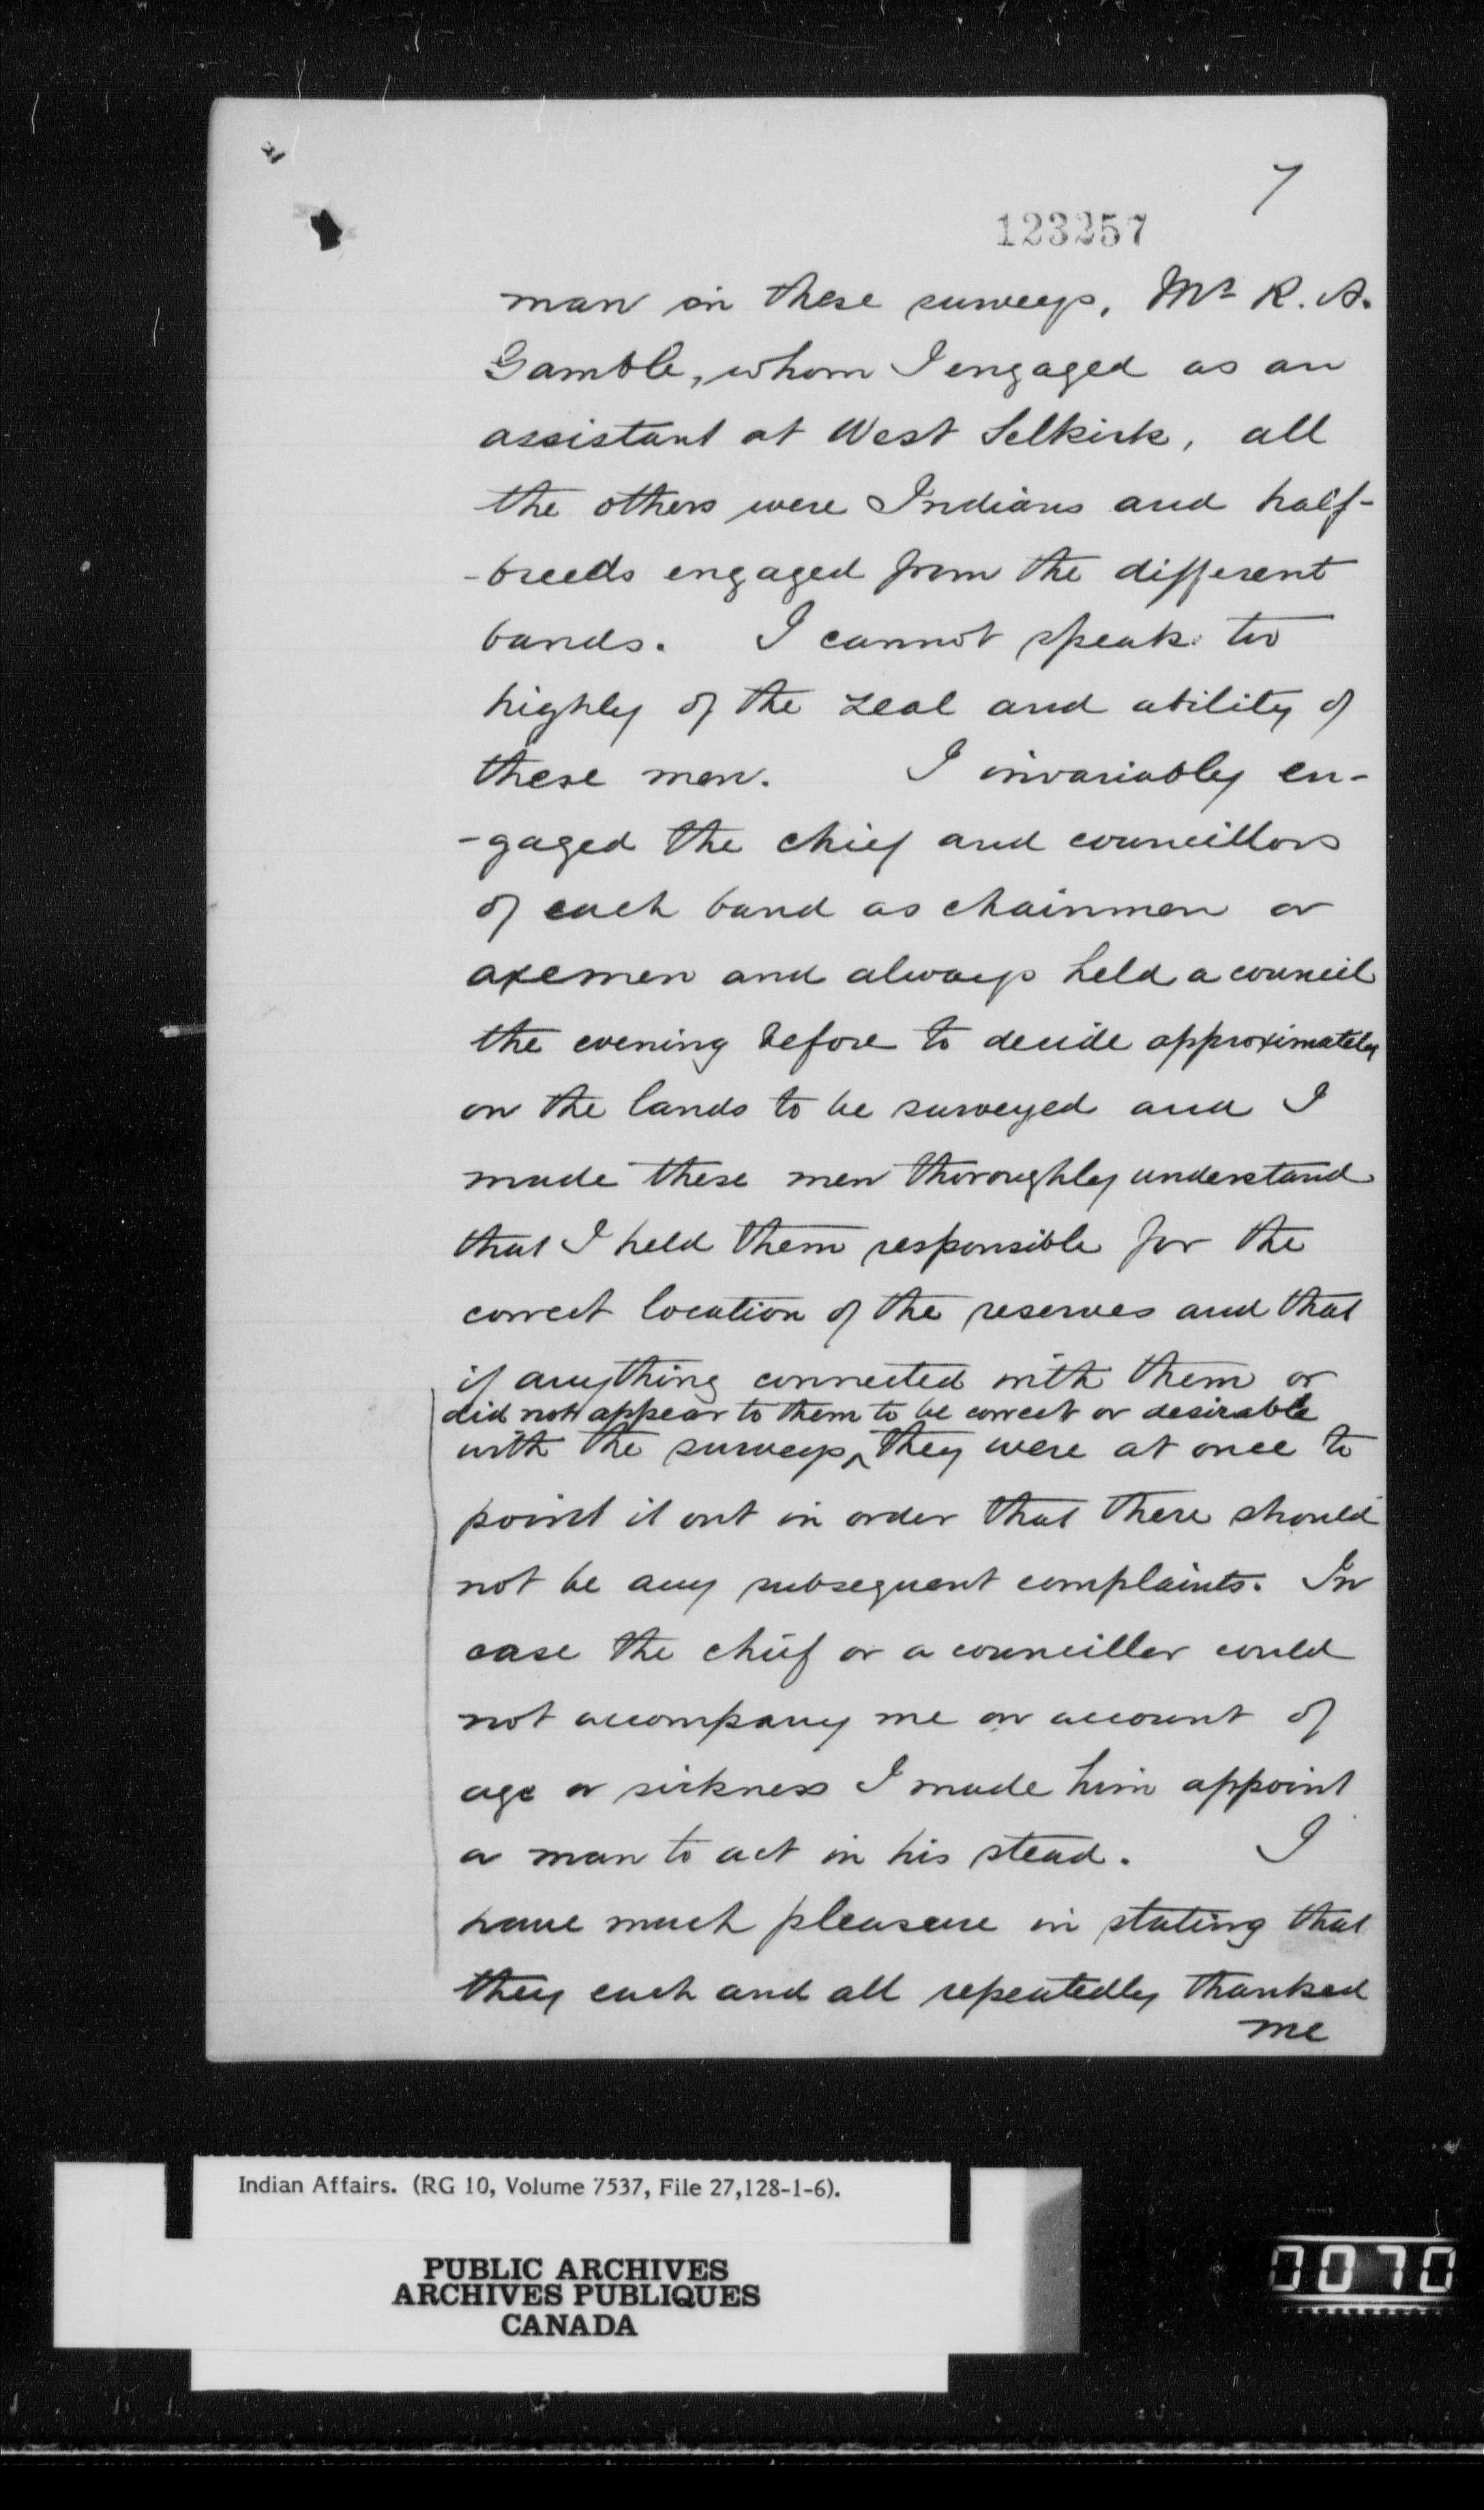 7
123257
man in these surveys, Mr R. A.
Gamble, whom I engaged as an
assistant at West Selkirk, all
the others were Indians and half-
-breeds engaged from the different
bands. I cannot speak too
highly of the zeal and ability of
these men. I invariably en-
-gaged the chief and councillors
of each band as chainmen or
axemen and always held a council
the evening before to decide approximately
on the lands to be surveyed and I
made these men thoroughly understand
that I held them responsible for the
correct location of the reserves and that
if anything connected with them or
did not appear to them to be correct or desirable
with the surveys ^ they were at once to
point it out in order that there should
not be any subsequent complaints. In
case the chief or a counciller could
not accompany me on account of
age or sickness I made him appoint
a man to act in his stead. I
have much pleasure in stating that
they each and all repeatedly thanked
me
Indian Affairs. (RG 10, Volume 7537, File 27,128-1-6).
PUBLIC ARCHIVES
ARCHIVES PUBLIQUES
CANADA
0070